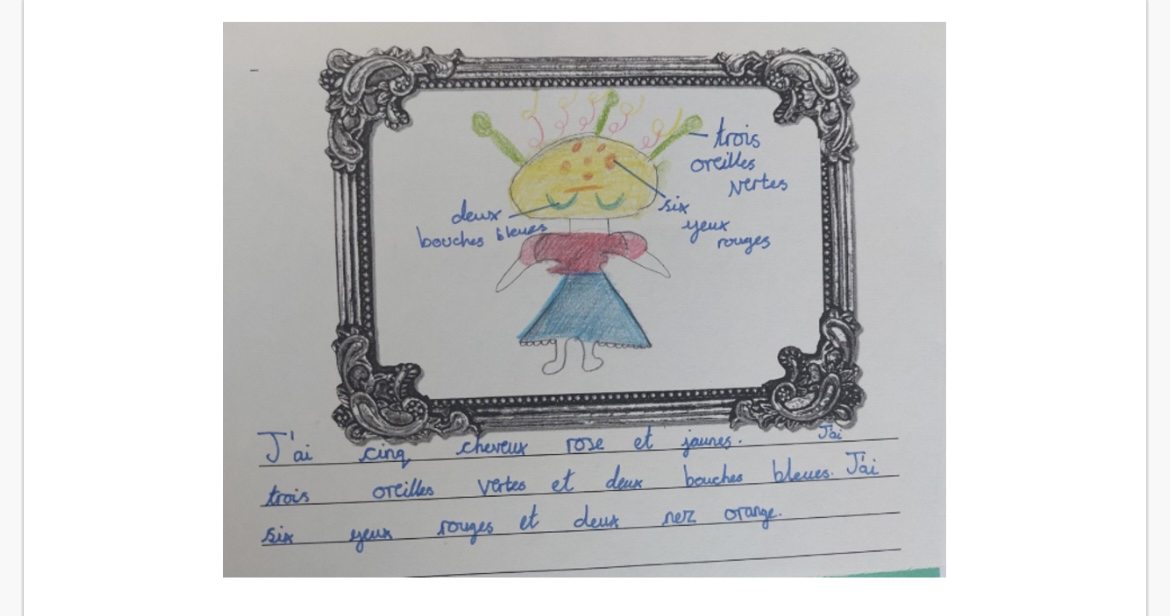 trois
oreilles
vertes
deux
bouches bleues
six
yeux
rouges
J'ai cinq cheveux rose et jaunes. J'ai
trois oreilles vertes et deux bouches bleues. J'ai
six yeux rouges et deux nez orange.